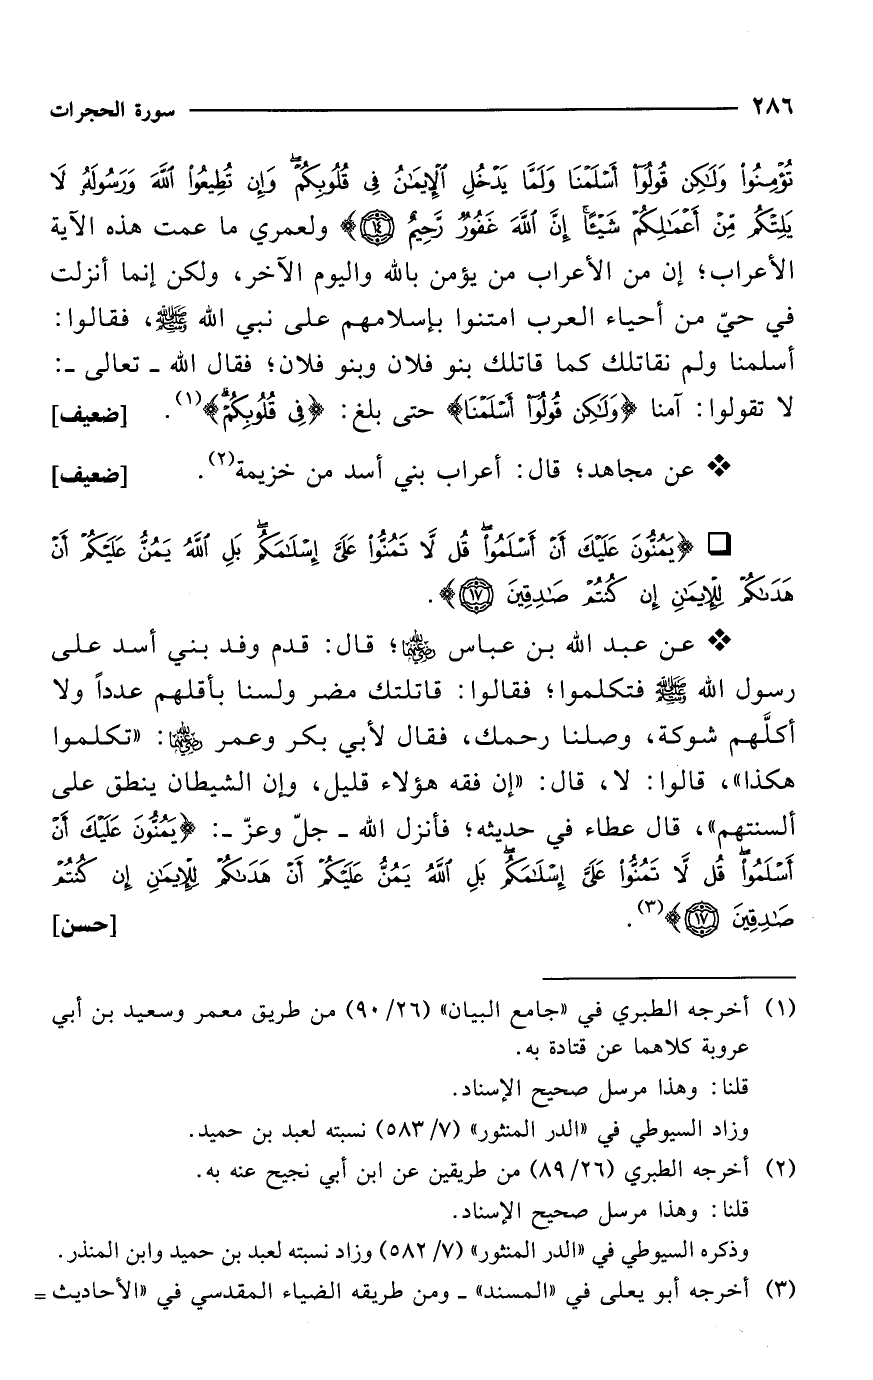 ٢٨٦ سورة الحجرات
تُؤْمِنُوا۟ وَلَـٰكِن قُولُوٓا۟ أَسْلَمْنَا وَلَمَّا يَدْخُلِ ٱلْإِيمَـٰنُ فِى قُلُوبِكُمْ ۖ وَإِن تُطِيعُوا۟ ٱللَّهَ وَرَسُولَهُۥ لَا
يَلِتْكُم مِّنْ أَعْمَـٰلِكُمْ شَيْـًٔا ۚ إِنَّ ٱللَّهَ غَفُورٌ رَّحِيمٌ ١٤﴾ ولعمري ما عمت هذه الآية
الأعراب؛ إن من الأعراب من يؤمن بالله واليوم الآخر، ولكن إنما أنزلت
في حيّ من أحياء العرب امتنوا بإسلامهم على نبي الله ﷺ، فقالوا:
أسلمنا ولم نقاتلك كما قاتلك بنو فلان وبنو فلان؛ فقال الله ـ تعالى ـ:
لا تقولوا: آمنا ﴿وَلَـٰكِن قُولُوٓا۟ أَسْلَمْنَا﴾ حتى بلغ: ﴿فِى قُلُوبِكُمْ ۖ﴾(١). [ضعيف]
❖ عن مجاهد؛ قال: أعراب بني أسد من خزيمة(٢). [ضعيف]
❑ ﴿يَمُنُّونَ عَلَيْكَ أَنْ أَسْلَمُوا۟ ۖ قُل لَّا تَمُنُّوا۟ عَلَىَّ إِسْلَـٰمَكُم ۖ بَلِ ٱللَّهُ يَمُنُّ عَلَيْكُمْ أَنْ
هَدَىٰكُمْ لِلْإِيمَـٰنِ إِن كُنتُمْ صَـٰدِقِينَ ١٧﴾.
❖ عن عبد الله بن عباس رضي الله عنهما؛ قال: قدم وفد بني أسد على
رسول الله ﷺ فتكلموا؛ فقالوا: قاتلتك مضر ولسنا بأقلهم عدداً ولا
أكلَّهم شوكة، وصلنا رحمك، فقال لأبي بكر وعمر رضي الله عنهما: «تكلموا
هكذا»، قالوا: لا، قال: «إن فقه هؤلاء قليل، وإن الشيطان ينطق على
ألسنتهم»، قال عطاء في حديثه؛ فأنزل الله ـ جلّ وعزّ ـ: ﴿يَمُنُّونَ عَلَيْكَ أَنْ
أَسْلَمُوا۟ ۖ قُل لَّا تَمُنُّوا۟ عَلَىَّ إِسْلَـٰمَكُم ۖ بَلِ ٱللَّهُ يَمُنُّ عَلَيْكُمْ أَنْ هَدَىٰكُمْ لِلْإِيمَـٰنِ إِن كُنتُمْ
صَـٰدِقِينَ ١٧﴾(٣). [حسن]
(١) أخرجه الطبري في «جامع البيان» (٢٦/ ٩٠) من طريق معمر وسعيد بن أبي
عروبة كلاهما عن قتادة به.
قلنا: وهذا مرسل صحيح الإسناد.
وزاد السيوطي في «الدر المنثور» (٧/ ٥٨٣) نسبته لعبد بن حميد.
(٢) أخرجه الطبري (٢٦/ ٨٩) من طريقين عن ابن أبي نجيح عنه به.
قلنا: وهذا مرسل صحيح الإسناد.
وذكره السيوطي في «الدر المنثور» (٧/ ٥٨٢) وزاد نسبته لعبد بن حميد وابن المنذر.
(٣) أخرجه أبو يعلى في «المسند» ـ ومن طريقه الضياء المقدسي في «الأحاديث =